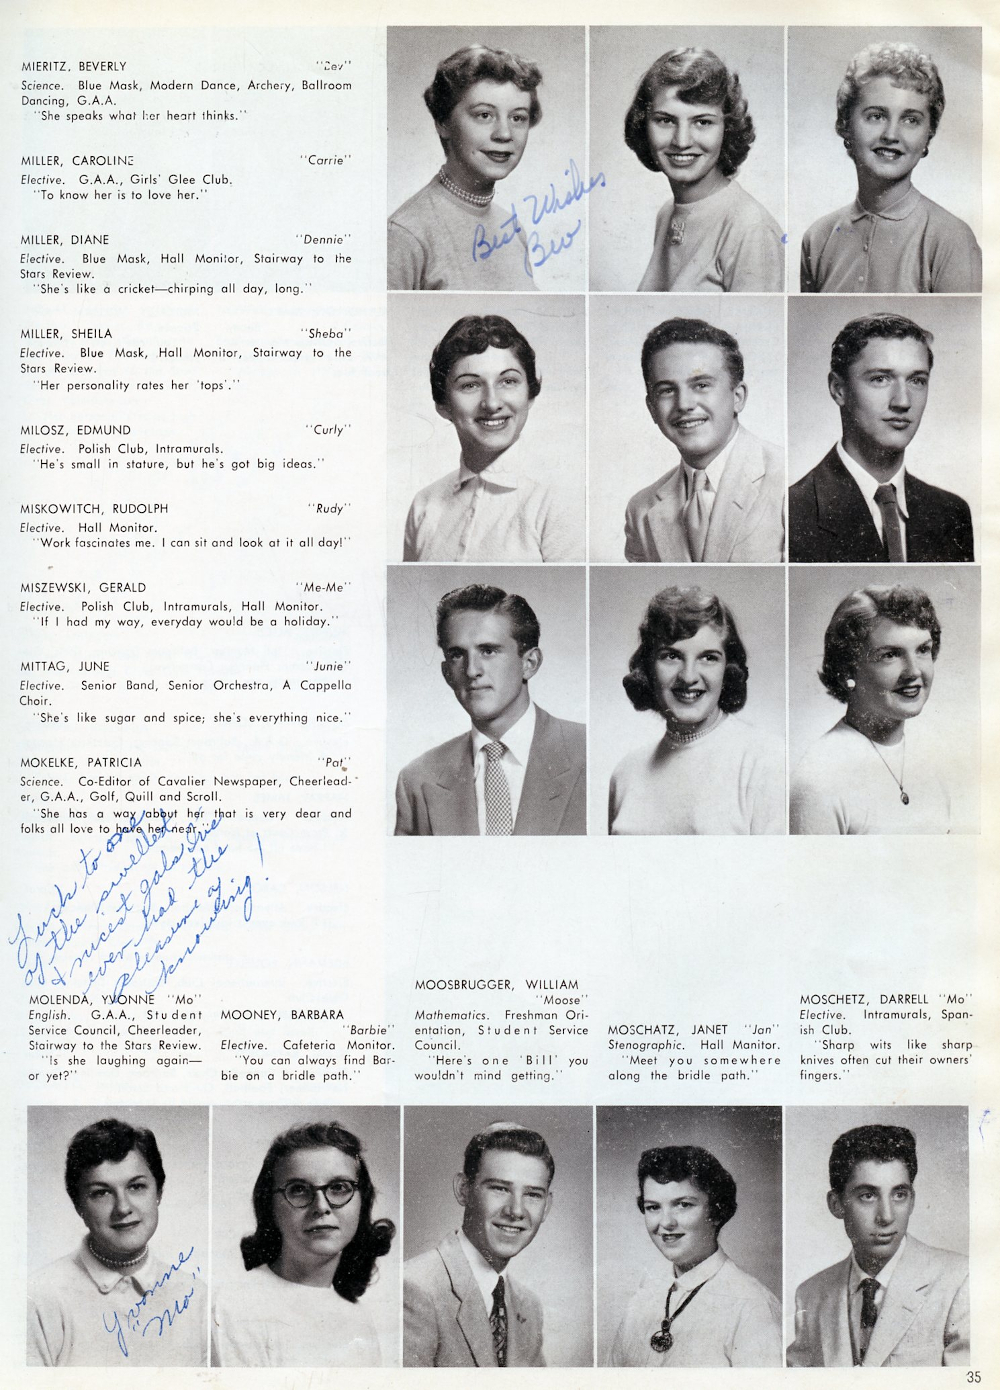 MIERITZ, BEVERLY "Bev"
Science. Blue Mask, Modern Dance, Archery, Ballroom
Dancing, G.A.A.
"She speaks what her heart thinks."
MILLER, CAROLINE "Carrie"
Elective. G.A.A., Girls' Glee Club.
"To know her is to love her."
MILLER, DIANE "Dennie"
Elective. Blue Mask, Hall Monitor, Stairway to the
Stars Review.
"She's like a cricket—chirping all day, long."
MILLER, SHEILA "Sheba"
Elective. Blue Mask, Hall Monitor, Stairway to the
Stars Review.
"Her personality rates her 'tops'."
MILOSZ, EDMUND "Curly"
Elective. Polish Club, Intramurals.
"He's small in stature, but he's got big ideas."
MISKOWITCH, RUDOLPH "Rudy"
Elective. Hall Monitor.
"Work fascinates me. I can sit and look at it all day!"
MISZEWSKI, GERALD "Me-Me"
Elective. Polish Club, Intramurals, Hall Monitor.
"If I had my way, everyday would be a holiday."
MITTAG, JUNE "Junie"
Elective. Senior Band, Senior Orchestra, A Cappella
Choir.
"She's like sugar and spice; she's everything nice."
MOKELKE, PATRICIA "Pat"
Science. Co-Editor of Cavalier Newspaper, Cheerlead-
er, G.A.A., Golf, Quill and Scroll.
"She has a way about her that is very dear and
folks all love to have her near."
Best Wishes
Bev
Luck to one
of the swellest
& nicest gals I've
ever had the
pleasure of
knowing!
MOLENDA, YVONNE "Mo"
English. G.A.A., Student
Service Council, Cheerleader,
Stairway to the Stars Review.
"Is she laughing again—
or yet?"
MOONEY, BARBARA
"Barbie"
Elective. Cafeteria Monitor.
"You can always find Bar-
bie on a bridle path."
MOOSBRUGGER, WILLIAM
"Moose"
Mathematics. Freshman Ori-
entation, Student Service
Council.
"Here's one 'Bill' you
wouldn't mind getting."
MOSCHATZ, JANET "Jan"
Stenographic. Hall Manitor.
"Meet you somewhere
along the bridle path."
MOSCHETZ, DARRELL "Mo"
Elective. Intramurals, Span-
ish Club.
"Sharp wits like sharp
knives often cut their owners'
fingers."
Yvonne
"Mo"
35